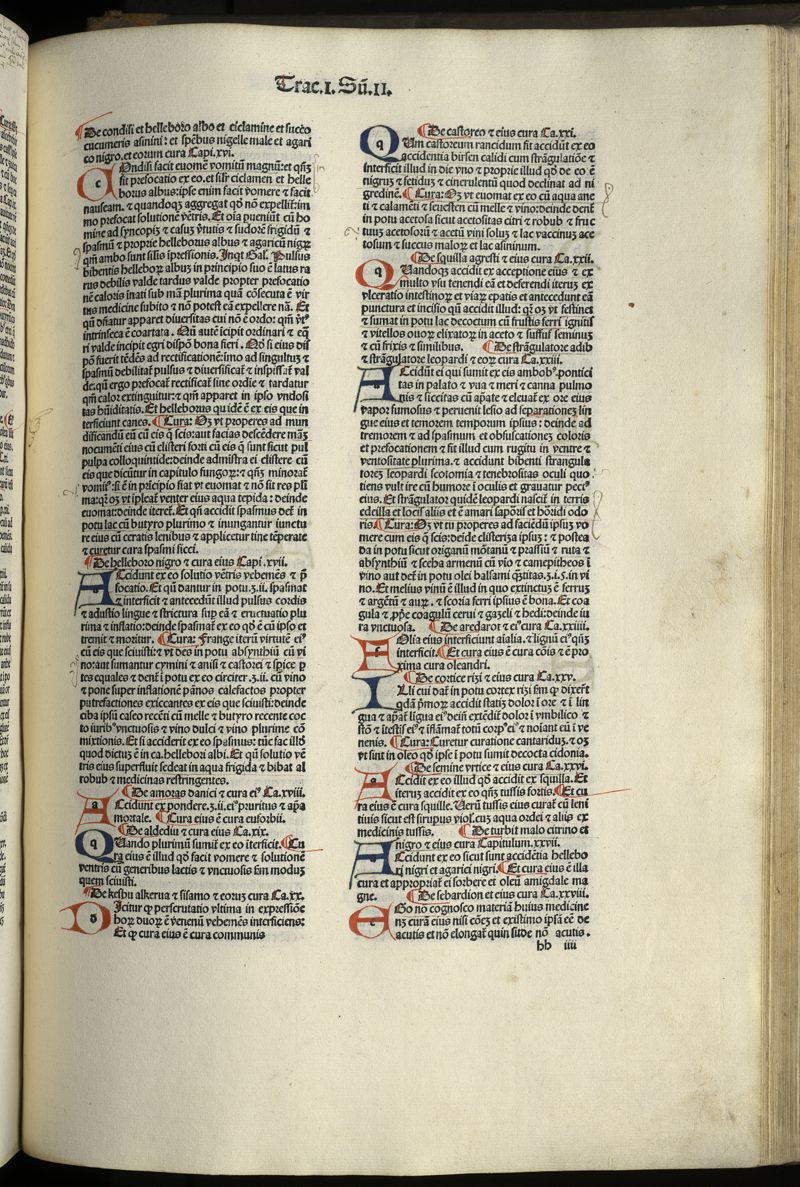 Trac.I. Sū.II.
De condisi et helleboro albo et ciclamine et succo
cucumeris asinini: et spēbus nigelle male et agari
co nigro. et eorum cura Capi.xvi.
COndisi facit euomē vomitū magnū: et qñꝫ
fit prefocatio ex eo. et silr ciclamen et helle
borus albus: ipse enim facit vomere ⁊ facit
nauseam. ⁊ quandoqꝫ aggregat qð nō expellit: im
mo prefocat solutionē vētris. Et oīa pueniūt cū ho
mine ad syncopiꝫ ⁊ casuꝫ v̄tutis ⁊ sudorē frigidū ⁊
spasmū ⁊ proprie helleborus albus ⁊ agaricū nigꝝ
qm̄ ambo sunt silis ip̄ressionis. Inqt Gal. Pulsus
bibentis helleborꝝ albuꝫ in principio suo ē latus ra
rus debilis valde tardus valde propter prefocatio
nē caloris īnati sub mā plurima quā cōsecuta ē vir
tus medicine subito ⁊ nō potest eā expellere nā. Et
qñ dn̄atur apparet diuersitas cui nō ē ordo: qm̄ v̄tꝰ
intrinseca ē coartata. Qñ autē īcipit ordinari ⁊ eq̄
ri valde incipit egri disp̄o bona fieri. Qð si eius dis
pō fuerit tēdēs ad rectificationē: imo ad singultuꝫ ⁊
spasmū debilitat pulsus ⁊ diuersificat̄ ⁊ inspissat̄ val
de: qñ ergo prefocat̄ rectificat̄ sine ordie ⁊ tardatur
qm̄ calor extinguitur: ⁊ qm̄ apparet in ipso vndosi
tas hūiditatis. Et helleborus quidē ē ex eis que in
terficiunt canes. Cura: Oꝫ vt properes ad mun
dificandū eū cū eis q̄ scis: aut facias descēdere māꝫ
nocumēti eius cū clisteri forti cū eis q̄ sunt sicut pul
pulpa colloquintide: deinde admistra ei clistere cū
eis que dicūtur in capitulo fungoꝝ: ⁊ qñꝫ minorat̄
vomitꝰ: si ē in prīcipio fiat vt euomat ⁊ nō sit res plī
ma: qꝫ oꝫ vt ip̄leat̄ venter eius aqua tepida: deinde
euomat: deinde iteret̄. Et qñ accidit spasmus det̄ in
potu lac cū butyro plurimo ⁊ inungantur iunctu
re eius cū ceratis lenibus ⁊ applicetur tine tēperate
⁊ curetur cura spasmi sicci.
De helleboro nigro ⁊ cura eius Capi.xvii.
ACcidunt ex eo solutio vētris vehemēs ⁊ p̄
focatio. Et qñ dantur in potu.ʒ.ii. spasmat
⁊ interficit ⁊ antecedūt illud pulsus cordis
⁊ adustio lingue ⁊ strictura sup eā ⁊ eructuatio plu
rima ⁊ inflatio: deinde spasmat̄ ex eo qð ē cū ipso et
tremit ⁊ moritur. Cura: Frange iterū virtutē eiꝰ
cū eis que sciuisti: ⁊ vt des in potu absynthiū cū vi
no: aut sumantur cymini ⁊ anisi ⁊ castorei ⁊ spice p̄
tes equales ⁊ denē ī potu ex eo circiter.ʒ.ii. cū vino
⁊ pone super inflationē pānos calefactos propter
putrefactiones exiccantes ex eis que sciuisti: deinde
ciba ipsū caseo recēti cū melle ⁊ butyro recente coc
to iuribꝰ vnctuosis ⁊ vino dulci ⁊ vino plurime cō
mixtionis. Et si acciderit ex eo spasmus: tūc fac illð
quod dictuꝫ ē in ca. hellebori albi. Et qñ solutio vē
tris eius superfluit sedeat in aqua frigida ⁊ bibat al
robub ⁊ medicinas restringentes.
De amoras danici ⁊ cura eiꝰ Ca.xviii.
ACcidunt ex pondere.ʒ.ii. eiꝰ pruritus ⁊ ap̄a
mortale. Cura eius ē cura euforbii.
De aldediu ⁊ cura eius Ca.xix.
QUando plurimū sumit̄ ex eo īterficit. Cu
ra eius ē illud qð facit vomere ⁊ solutionē
ventris cū generibus lactis ⁊ vncuosis sm̄ modū
quem sciuisti.
De keshu alkerua ⁊ sisamo ⁊ eorū cura Ca.xx.
DIcitur qꝫ perscrutatio vltima in expressiōe
horꝫ duorꝫ ē venenū vehemēs interficiens:
Et qꝫ cura eius ē cura communis
De castoreo ⁊ eius cura Ca.xxi.
QUm castoreum rancidum fit accidūt ex eo
accidentia birsen calidi cum strāgulatiōe ⁊
interficit illud in die vno ⁊ proprie illud qð de eo ē
nigrꝫ ⁊ fetiduꝫ ⁊ cinerulentū quod declinat ad ni
gredinē. Cura: Oꝫ vt euomat ex eo cū aqua ane
ti ⁊ calamēti ⁊ seuesten cū melle ⁊ vino: deinde dent̄
in potu acetosa sicut acetositas citri ⁊ robub ⁊ fruc
tuuꝫ acetosorū ⁊ acetū vini soluꝫ ⁊ lac vaccinuꝫ ace
tosum ⁊ succus malorꝫ et lac asininum.
De squilla agresti ⁊ eius cura Ca.xxii.
QUandoqꝫ accidit ex acceptione eius ⁊ ex
multo vsu tenendi eā et deferendi iteruꝫ ex
vlceratio intestinoꝝ et viarꝫ epatis et antecedunt eā
punctura et incisio qñ accidit illud: qꝫ oꝫ vt festinet̄
⁊ sumat in potu lac decoctum cū frustis ferri ignitis
⁊ vitellos ouoꝝ elixatoꝝ in aceto ⁊ suffuf seminuꝫ
⁊ cū frixis ⁊ similibus. De strāgulatore adib
⁊ strāgulatore leopardi ⁊ eoꝝ cura Ca.xxiii.
ACcidūt ei qui sumit ex eis ambobꝰ. pontici
tas in palato ⁊ vua ⁊ meri ⁊ canna pulmo
nis ⁊ siccitas cū ap̄ate ⁊ eleuat̄ ex ore eius
vapor fumosus ⁊ peruenit lesio ad separationeꝫ lin
gue eius et temorem temporum ipsius: deinde ad
tremorem ⁊ ad spasmum et obfuscationeꝫ coloris
et prefocationem ⁊ fit illud cum rugitu in ventre ⁊
ventositate plurima. ⁊ accidunt bibenti strangula
toreꝫ leopardi scotomia ⁊ tenebrositas oculi quo
tiens vult ire cū humore ī oculis et grauatur pectꝰ
eius. Et strāgulator quidē leopardi nascit̄ in terris
edeilla et locis aliis et ē amari saporis et horidi odo
ris. Cura: Oꝫ vt tu properes ad faciēdū ipsuꝫ vo
mere cum eis q̄ scis: deīde clisteriza ipsuꝫ: ⁊ postea
da in potu sicut origanū mōtanū ⁊ prassiū ⁊ ruta ⁊
absynthiū ⁊ sceba armenū cū vio ⁊ camepitheos ī
vino aut det̄ in potu olei balsami q̄titas.ʒ.i.s. in vi
no. Et melius vinū ē illud in quo extinctuꝫ ē ferruꝫ
⁊ argētū ⁊ auꝝ. ⁊ scoria ferri ipsius ē bona. Et coa
gula ⁊ ppe coagulū cerui ⁊ gazeli ⁊ hedi: deinde iu
ra vnctuosa. De aredarof ⁊ eiꝰ cura Ca.xxiiii.
FOlia eius interficiunt aialia. ⁊ lignū eiꝰ qñꝫ
interficit. Et cura eius ē cura cōis ⁊ ē pro
xima cura oleandri.
De cortice rizi ⁊ eius cura Ca.xxv.
ILli cui dat̄ in potu cortex rizi sm̄ qð dixert̄
qdā p̄moꝝ accidit statiꝫ dolor ī ore ⁊ ī lin
gua ⁊ apat̄ līgua eiꝰ deiñ extēdit̄ dolor ī vmbilico ⁊
stō ⁊ ītestiſ eiꝰ ⁊ īflāmat̄ totū corpꝰ eiꝰ ⁊ noiant eū ī ve
nenis. Cura: Curetur curatione cantariduꝫ. ⁊ oꝫ
vt sint in oleo qð ipse ī potu sumit decocta cidonia.
De semine vrtice ⁊ eius cura Ca.xxvi.
ACcidit ex eo illud qð accidit ex squilla. Et
iteruꝫ accidit ex eo qñꝫ tussis fortis. Et cu
ra eius ē cura squille. Uerū tussis eius curat̄ cū leni
tiuis sicut est sirupus viol. cuꝫ aqua ordei ⁊ aliis ex
medicinis tussis. De turbit malo citrino et
nigro ⁊ eius cura Capitulum.xxvii.
ACcidunt ex eo sicut sunt accidētia hellebo
ri nigri et agarici nigri. Et cura eius ē illa
cura et appropriat̄ ei sorbere et oleū amigdale ma
gne. De sebardion et eius cura Ca.xxviii.
EGo nō cognosco materiā huius medicine
neꝫ curā eius nisi cōeꝫ et existimo ipsā eē de
acutis et nō elongat̄ quin sit de nō acutis.
bb iiii